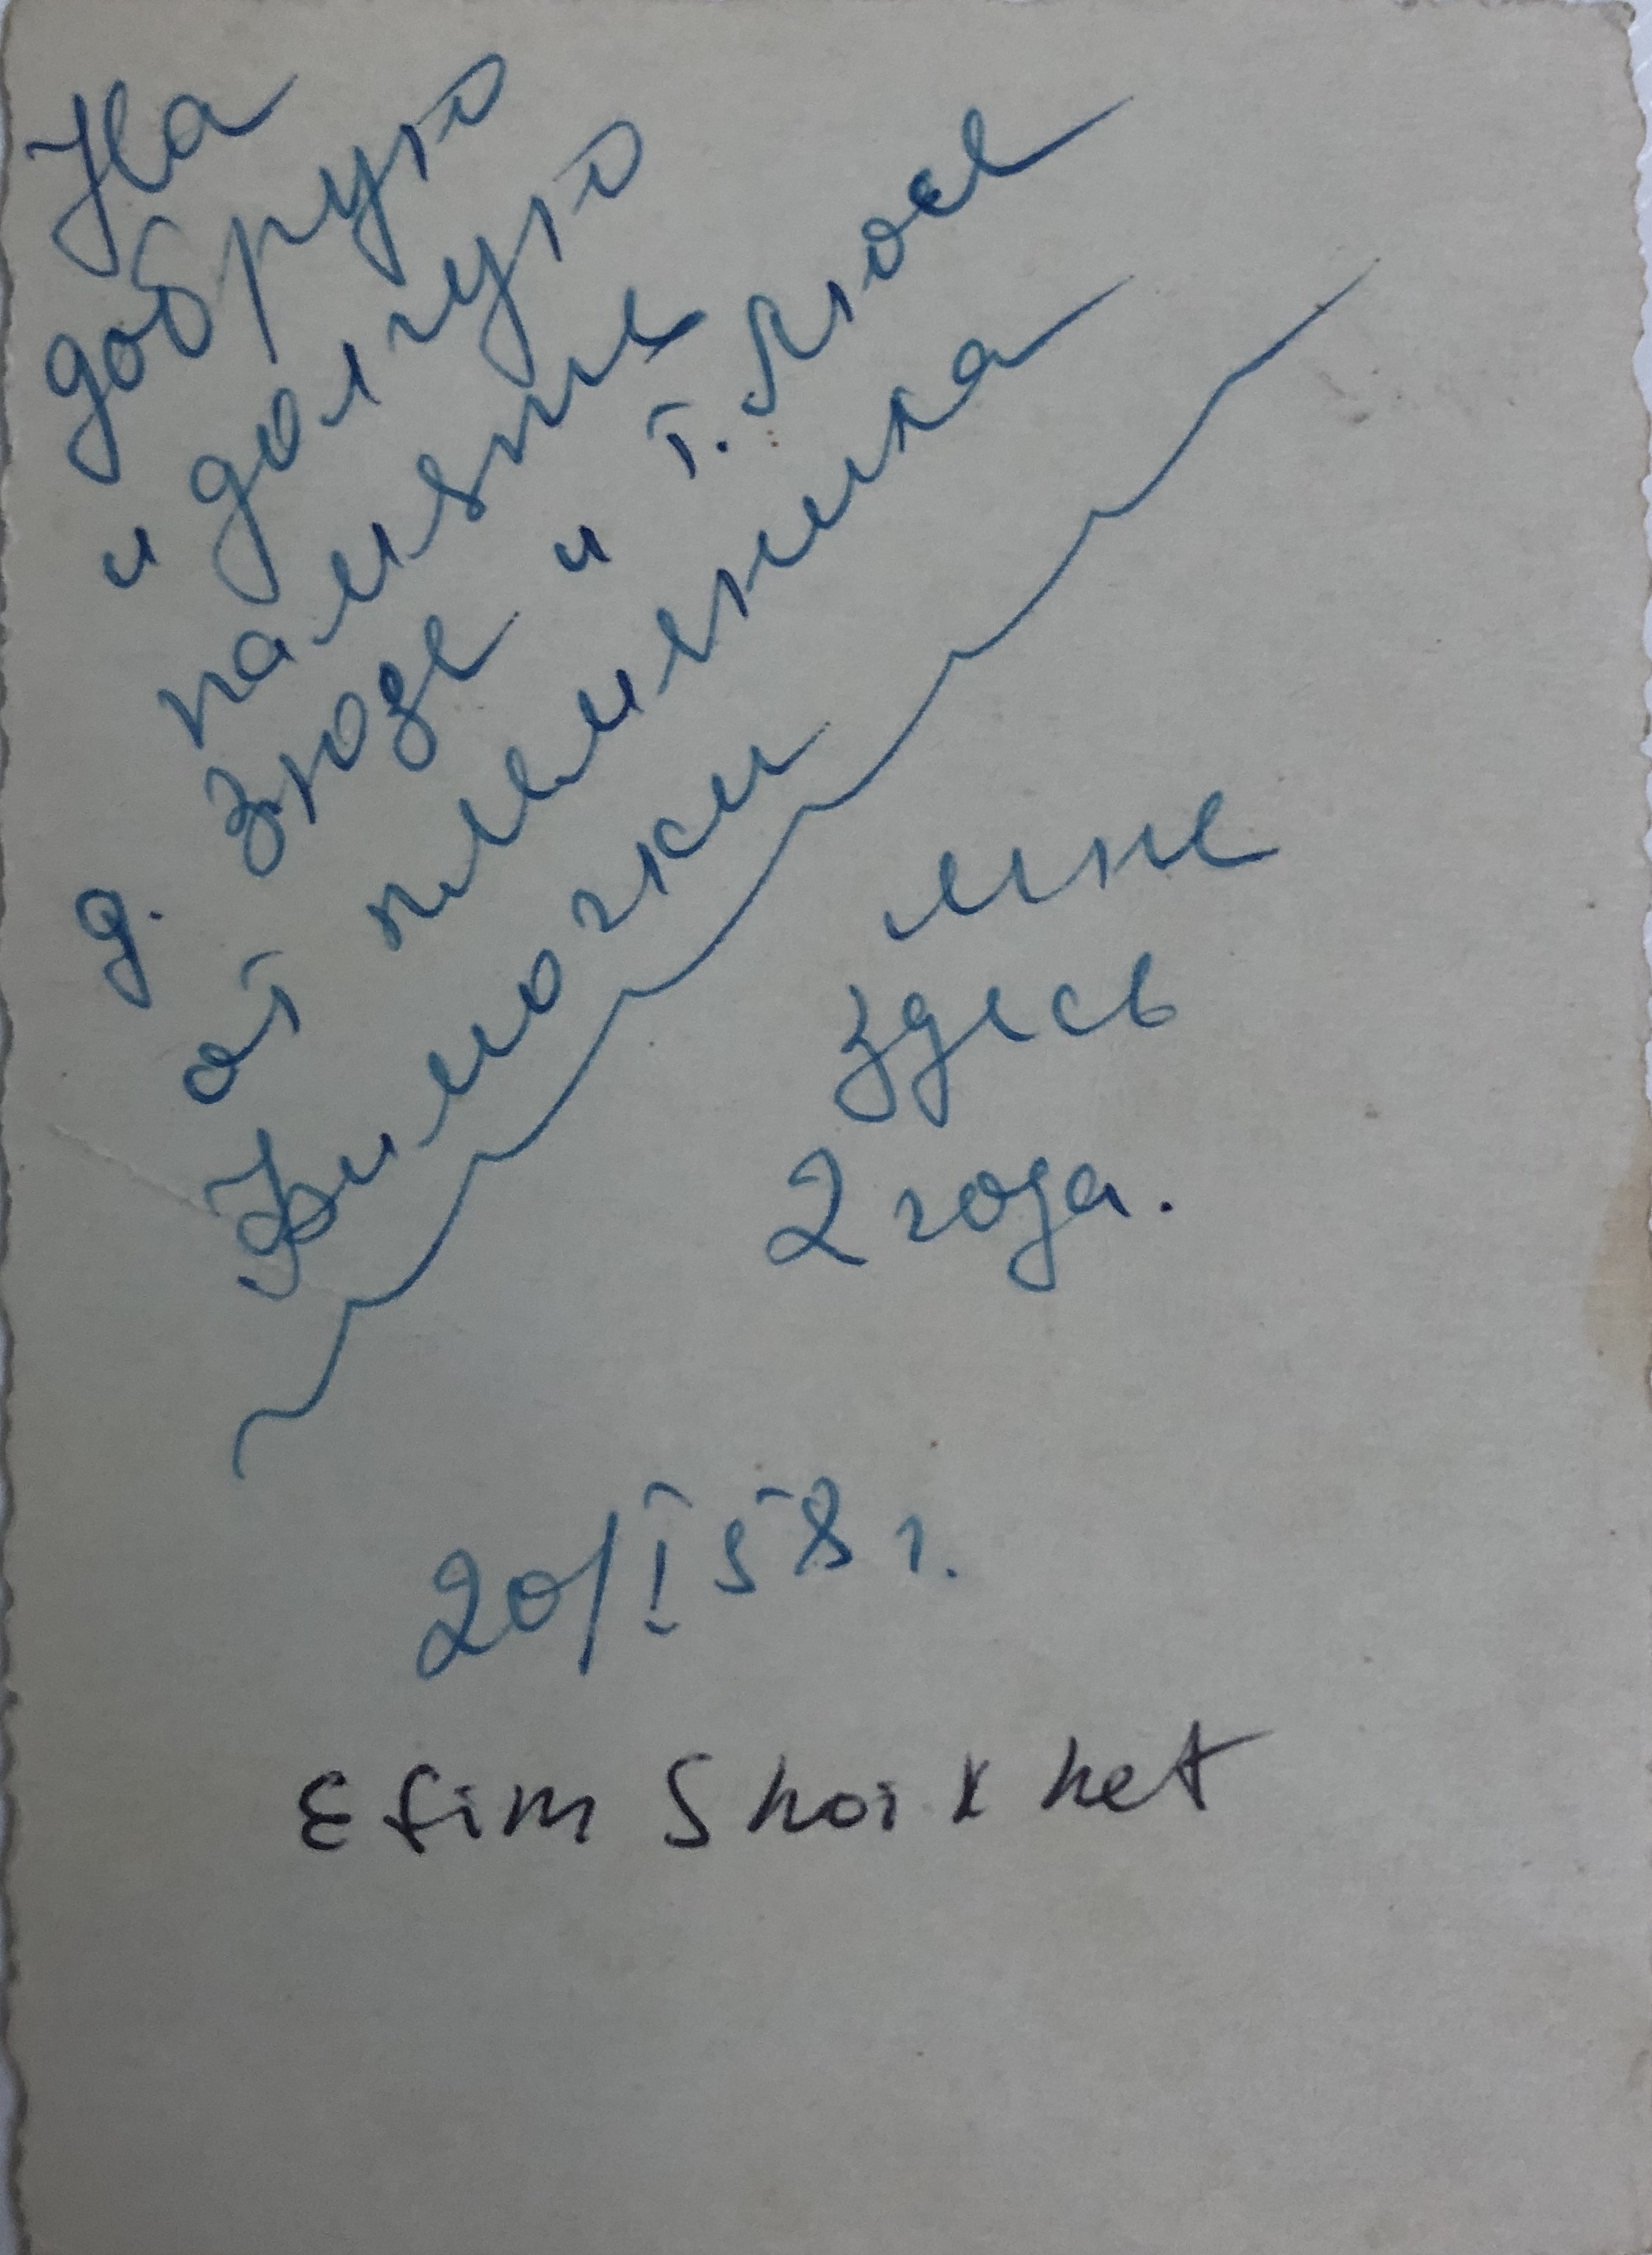 На
добрую
и долгую
память
д. Зюзе и т. Люсе
от племеника
Фимочки
мне
здесь
2 года.
20/I 58 г.
Efim Shoikhet